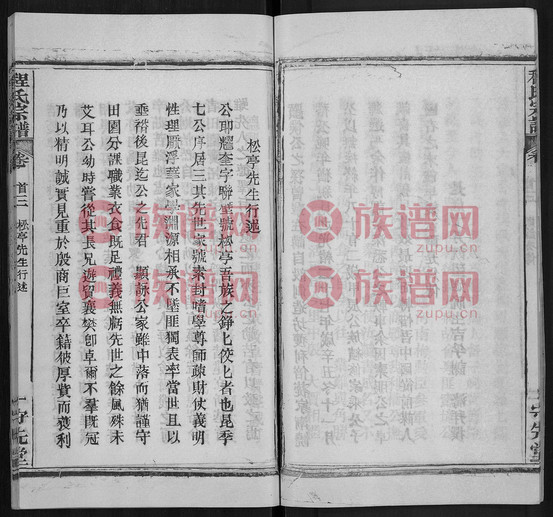 松亭先生行述
公耶耀奎字聯璧號松亭吾族之錚七佼七者也昆季
七公序居三其先世家號素封嗜學尊師疎財仗義明
性理厭浮華家學淵源相承不墜匪獨表率當世且以
垂裕後昆迄公之先君 顯詠公家雖中落而猶謹守
田園分課職業衣食既足禮義無虧先世之餘風殊未
艾耳公幼時嘗從其長兄遊貿襄樊卽卓爾不羣既冠
乃以精明誠實見重於殷商巨室卒藉彼厚貲而獲利
程氏宗譜
卷首三 松亭先生行述
守先堂
程氏宗譜
守先堂
族谱网
zupu.cn
族谱网
zupu.cn
族谱网
zupu.cn
族谱网
zupu.cn